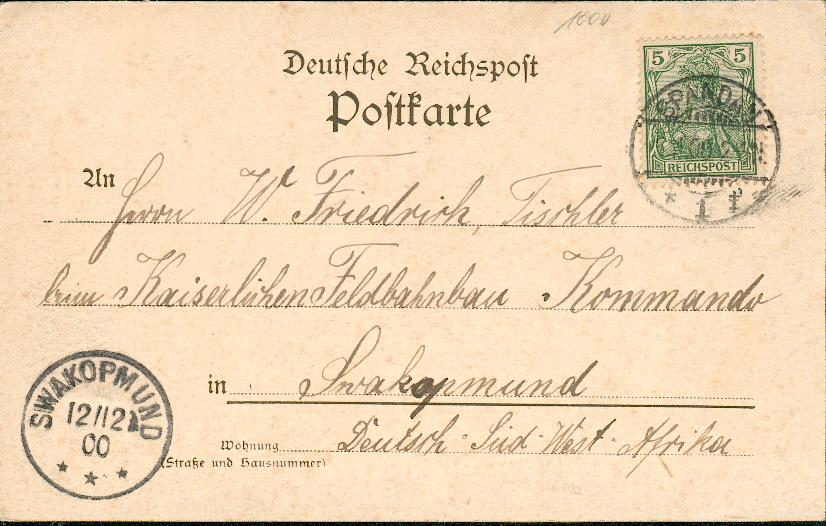 1000
Deutsche Reichspost
Postkarte
5 5
REICHSPOST
SPANDAU
* 1 f *
An Herrn W. Friedrich, Tischler
beim Kaiserlichen Feldbahnbau Kommando
in Swakopmund
Wohnung Deutsch-Süd-West-Afrika
(Straße und Hausnummer)
SWAKOPMUND
12/12
00
* * *